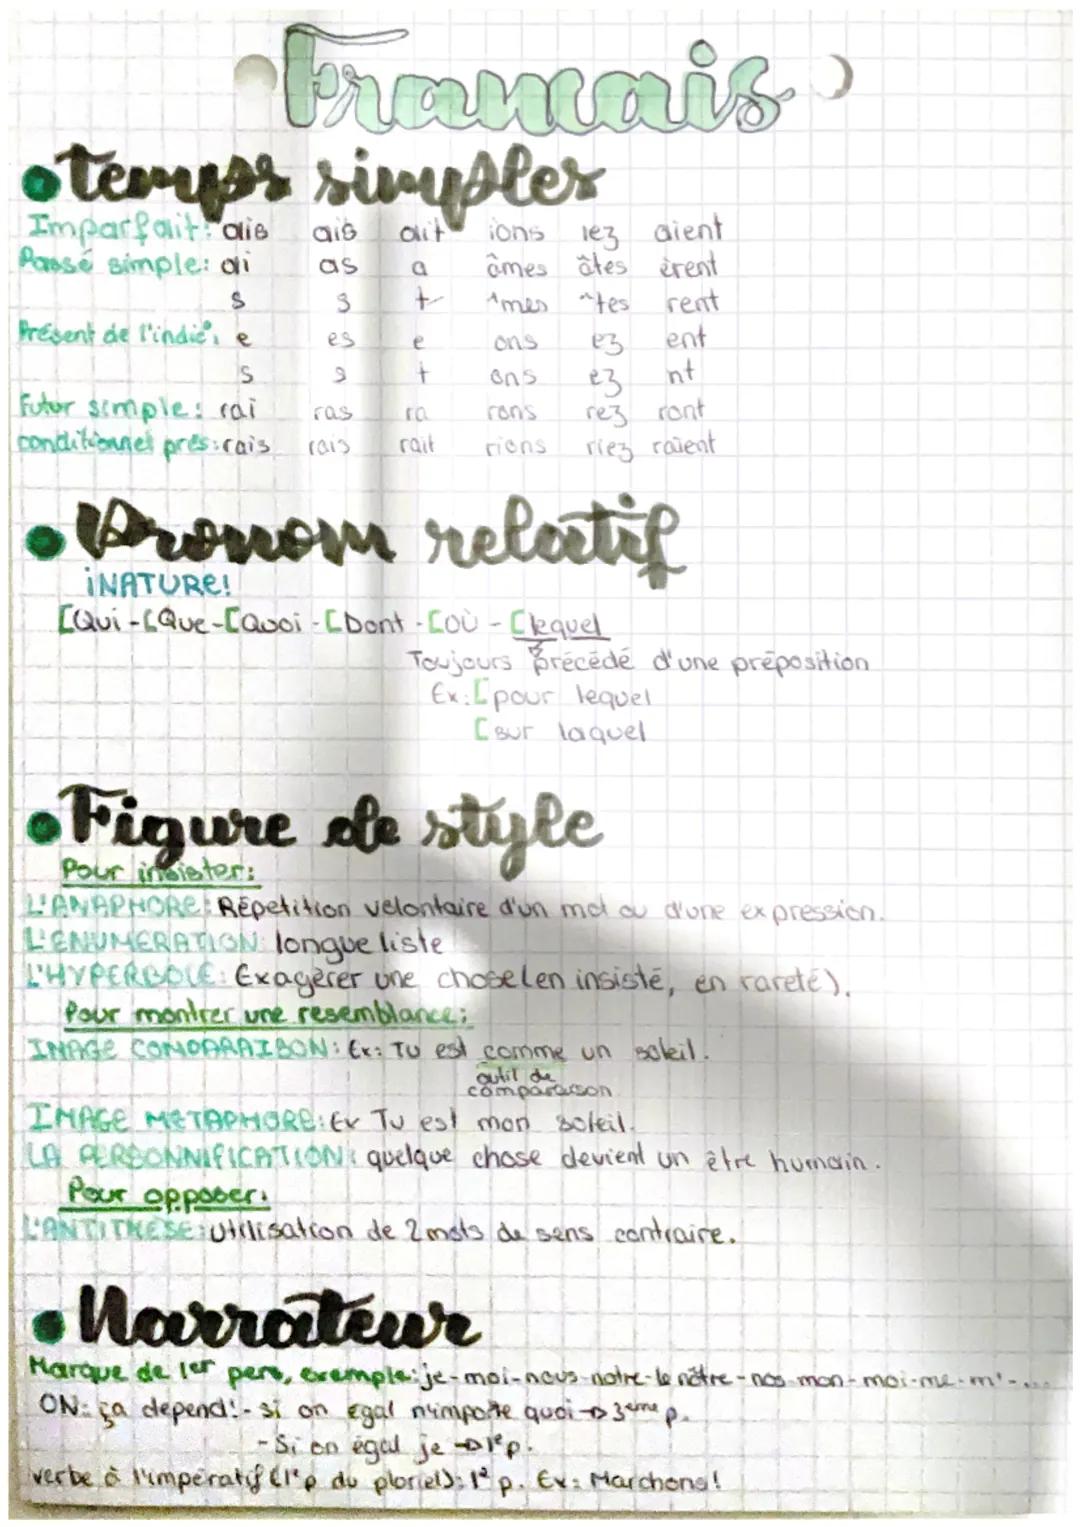 Francais
temps simples
Imparfait: ais ais ait ions iez aient
Passé simple: ai as a âmes âtes èrent
s s t ^mes ^tes rent
Présent de l'indic°: e es e ons ez ent
s s t ons ez nt
Futur simple: rai ras ra rons rez ront
conditionnel prés: rais rais rait rions riez raient
Pronom relatif
¡NATURE!
[Qui - [Que - [Quoi - [Dont - [Où - [lequel
Toujours précédé d'une préposition
Ex: [pour lequel
[sur laquel
Figure de style
Pour insister:
L'ANAPHORE: Répetition velontaire d'un mot ou d'une expression.
L'ENUMERATION: longue liste
L'HYPERBOLE: Exagèrer une chose(en insisté, en rareté).
Pour montrer une resemblance:
IMAGE COMPARAISON: Ex: Tu est comme un soleil.
outil de
comparaison
IMAGE METAPHORE: Ex Tu est mon soleil.
LA PERSONNIFICATION: quelque chose devient un être humain.
Pour opposer:
L'ANTITHESE: Utilisation de 2 mots de sens contraire.
Narrateur
Marque de 1er pers, exemple: je-moi-nous-notre-le nôtre-nos-mon-moi-me-m'-...
ON: ça dépend: - si on égal n'importe quoi → 3eme p.
- Si on égal je → 1e p.
verbe à l'impératif (1e p du ploriel): 1e p. Ex: Marchons!